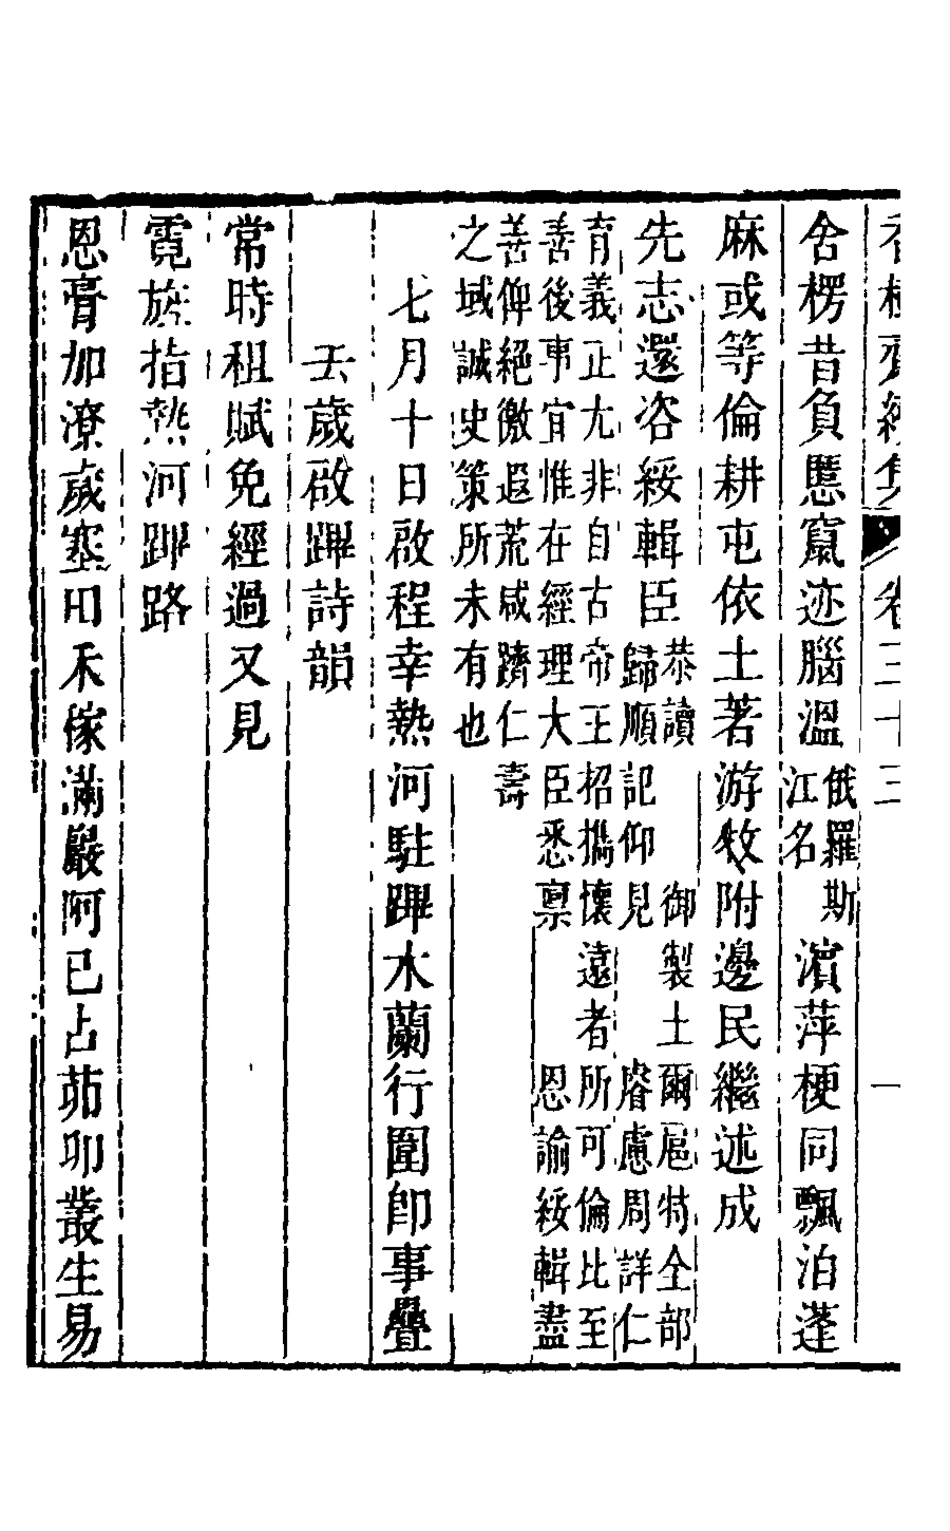 香樹齋續集 卷三十三 一
舍楞昔負慝竄迹腦溫俄羅斯江名濵萍梗同飄泊蓬
麻或等倫耕屯依土著游牧附邊民繼述成
先志還咨綏輯臣
恭讀 御製土爾扈特全部
歸順記仰見 睿慮周詳仁
育義正尤非自古帝王招攜懷遠者所可倫比至
善後事宜惟在經理大臣悉禀 恩諭綏輯盡
善俾絕徼遐荒咸躋仁壽
之域誠史策所未有也
七月十日啟程幸熱河駐蹕木蘭行圍即事疊
壬歲啟蹕詩韻
常時租賦免經過又見
霓旌指熱河蹕路
恩膏加潦歲塞田禾稼滿巖阿已占茆卯叢生易